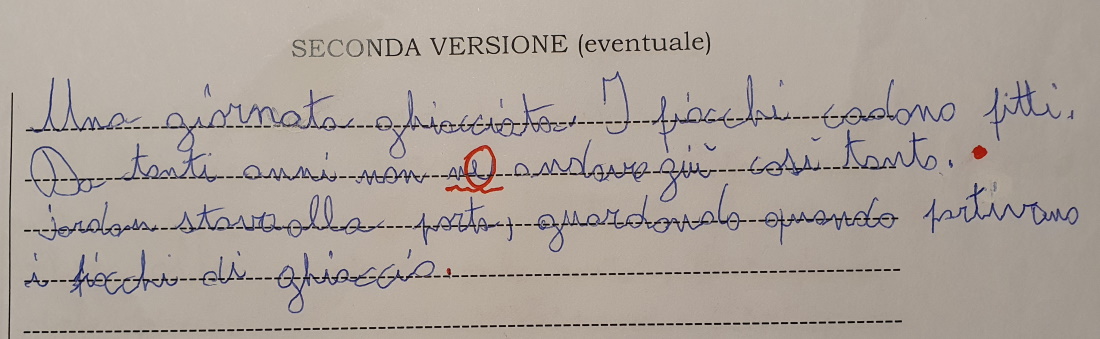 SECONDA VERSIONE (eventuale)
Una giornata ghiacciata. I fiocchi cadono fitti.
Da tanti anni non ne andava giù così tanto.
jordan stava alla porta, guardando quando partivano
i fiocchi di ghiaccio.